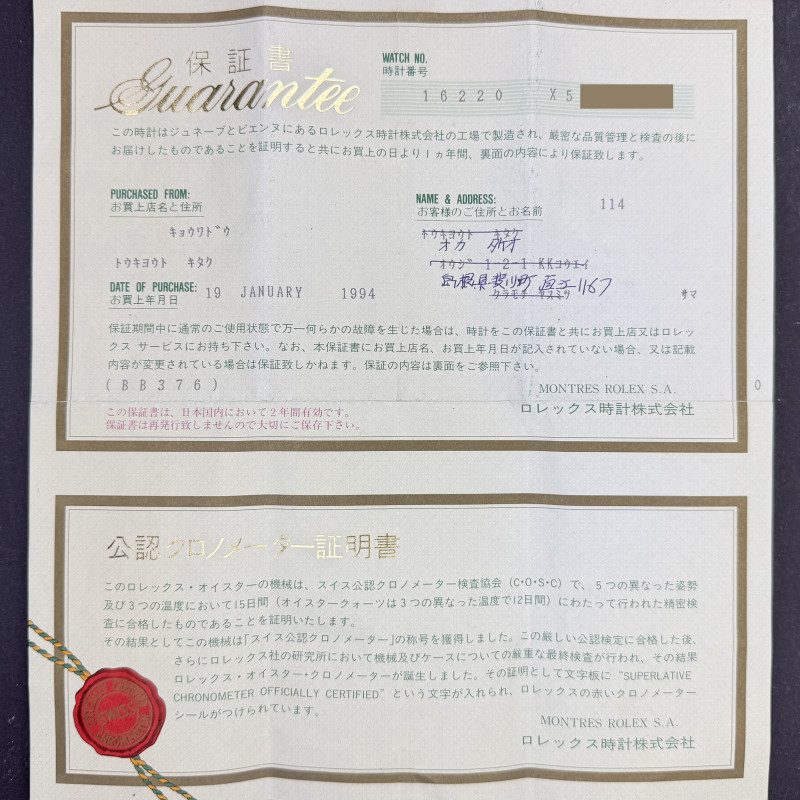 保証書
Guarantee
WATCH NO.
時計番号
16220 X5
この時計はジュネーブとビエンヌにあるロレックス時計株式会社の工場で製造され、厳密な品質管理と検査の後に
お届けしたものであることを証明すると共にお買上の日より1ヵ年間、裏面の内容により保証致します。
PURCHASED FROM:
お買上店名と住所
キョウワドウ
トウキヨウト キタク
NAME & ADDRESS:
お客様のご住所とお名前
114
トウキヨウト キタク
オカ タケオ
オウジ 1-2-1 KKコウエイ
島根県斐川町直江1167
クラモチ ヤスミツ
サマ
DATE OF PURCHASE:
お買上年月日
19 JANUARY 1994
保証期間中に通常のご使用状態で万一何らかの故障を生じた場合は、時計をこの保証書と共にお買上店又はロレッ
クス サービスにお持ち下さい。なお、本保証書にお買上店名、お買上年月日が記入されていない場合、又は記載
内容が変更されている場合は保証致しかねます。保証の内容は裏面をご参照下さい。
(BB376)
MONTRES ROLEX S.A.
ロレックス時計株式会社
0
この保証書は、日本国内において2年間有効です。
保証書は再発行致しませんので大切にご保存下さい。
公認クロノメーター証明書
このロレックス・オイスターの機械は、スイス公認クロノメーター検査協会(C・O・S・C)で、5つの異なった姿勢
及び3つの温度において15日間(オイスタークォーツは3つの異なった温度で12日間)にわたって行われた精密検
査に合格したものであることを証明いたします。
その結果としてこの機械は「スイス公認クロノメーター」の称号を獲得しました。この厳しい公認検定に合格した後、
さらにロレックス社の研究所において機械及びケースについての厳重な最終検査が行われ、その結果
ロレックス・オイスター・クロノメーターが誕生しました。その証明として文字板に "SUPERLATIVE
CHRONOMETER OFFICIALLY CERTIFIED" という文字が入れられ、ロレックスの赤いクロノメーター
シールがつけられています。
MONTRES ROLEX S.A.
ロレックス時計株式会社
SWISS